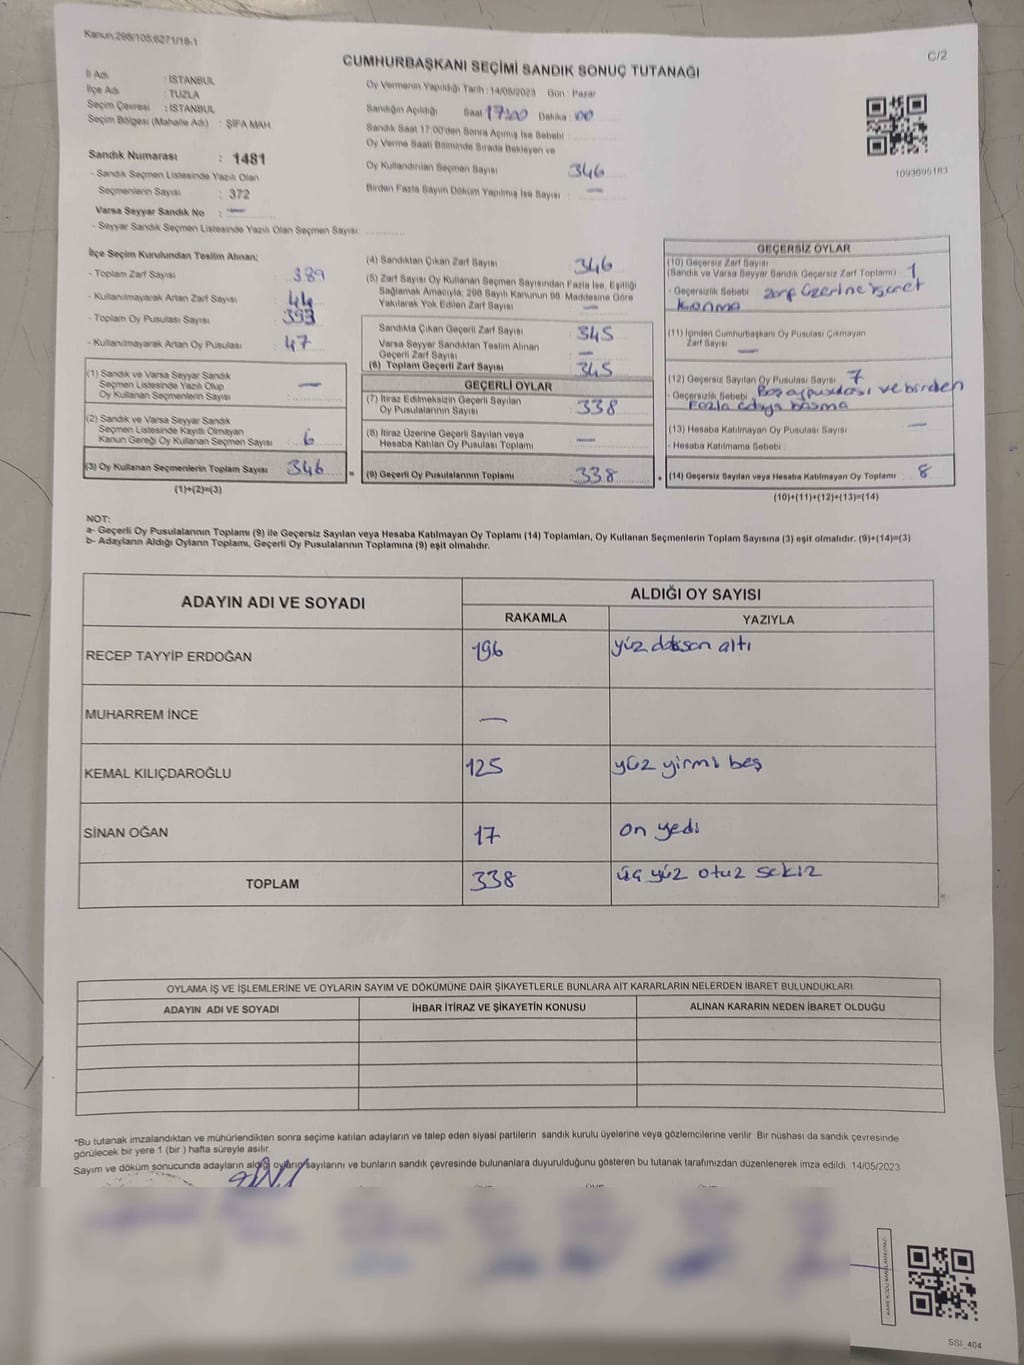 Kanun;298/105;6271/18-1
C/2
CUMHURBAŞKANI SEÇİMİ SANDIK SONUÇ TUTANAĞI
İl Adı : İSTANBUL
İlçe Adı : TUZLA
Seçim Çevresi : İSTANBUL
Seçim Bölgesi (Mahalle Adı) : ŞİFA MAH.
Sandık Numarası : 1481
- Sandık Seçmen Listesinde Yazılı Olan
Seçmenlerin Sayısı : 372
Varsa Seyyar Sandık No : —
- Seyyar Sandık Seçmen Listesinde Yazılı Olan Seçmen Sayısı:
Oy Vermenin Yapıldığı Tarih : 14/05/2023 Gün : Pazar
Sandığın Açıldığı Saat 17:00 Dakika : 00
Sandık Saat 17:00'den Sonra Açılmış İse Sebebi :
Oy Verme Saati Bitiminde Sırada Bekleyen ve
Oy Kullandırılan Seçmen Sayısı 346
Birden Fazla Sayım Döküm Yapılmış İse Sayısı : —
1093695183
İlçe Seçim Kurulundan Teslim Alınan;
- Toplam Zarf Sayısı : 389
- Kullanılmayarak Artan Zarf Sayısı : 44
- Toplam Oy Pusulası Sayısı : 393
- Kullanılmayarak Artan Oy Pusulası : 47
(1) Sandık ve Varsa Seyyar Sandık
Seçmen Listesinde Yazılı Olup
Oy Kullanan Seçmenlerin Sayısı : —
(2) Sandık ve Varsa Seyyar Sandık
Seçmen Listesinde Kayıtlı Olmayan
Kanun Gereği Oy Kullanan Seçmen Sayısı : 6
(3) Oy Kullanan Seçmenlerin Toplam Sayısı 346 =
(1)+(2)=(3)
(4) Sandıktan Çıkan Zarf Sayısı 346
(5) Zarf Sayısı Oy Kullanan Seçmen Sayısından Fazla İse, Eşitliği
Sağlamak Amacıyla, 298 Sayılı Kanunun 98. Maddesine Göre
Yakılarak Yok Edilen Zarf Sayısı : —
Sandıkta Çıkan Geçerli Zarf Sayısı : 345
Varsa Seyyar Sandıktan Teslim Alınan
Geçerli Zarf Sayısı : —
(6) Toplam Geçerli Zarf Sayısı : 345
GEÇERLİ OYLAR
(7) İtiraz Edilmeksizin Geçerli Sayılan
Oy Pusulalarının Sayısı : 338
(8) İtiraz Üzerine Geçerli Sayılan veya
Hesaba Katılan Oy Pusulası Toplamı : —
(9) Geçerli Oy Pusulalarının Toplamı : 338 +
GEÇERSİZ OYLAR
(10) Geçersiz Zarf Sayısı
(Sandık ve Varsa Seyyar Sandık Geçersiz Zarf Toplamı) : 1
- Geçersiz Sebebi : zarf üzerine işaret
konma
(11) İçinden Cumhurbaşkanı Oy Pusulası Çıkmayan
Zarf Sayısı : —
(12) Geçersiz Sayılan Oy Pusulası Sayısı : 7
- Geçersizlik Sebebi : Boş oy pusulası ve birden
Fazla adaya basma
(13) Hesaba Katılmayan Oy Pusulası Sayısı : —
- Hesaba Katılmama Sebebi :
(14) Geçersiz Sayılan veya Hesaba Katılmayan Oy Toplamı : 8
(10)+(11)+(12)+(13)=(14)
NOT:
a- Geçerli Oy Pusulalarının Toplamı (9) ile Geçersiz Sayılan veya Hesaba Katılmayan Oy Toplamı (14) Toplamları, Oy Kullanan Seçmenlerin Toplam Sayısına (3) eşit olmalıdır. (9)+(14)=(3)
b- Adayların Aldığı Oyların Toplamı, Geçerli Oy Pusulalarının Toplamına (9) eşit olmalıdır.
ADAYIN ADI VE SOYADI ALDIĞI OY SAYISI
RAKAMLA YAZIYLA
RECEP TAYYİP ERDOĞAN 196 yüz doksan altı
MUHARREM İNCE —
KEMAL KILIÇDAROĞLU 125 yüz yirmi beş
SİNAN OĞAN 17 on yedi
TOPLAM 338 üç yüz otuz sekiz
OYLAMA İŞ VE İŞLEMLERİNE VE OYLARIN SAYIM VE DÖKÜMÜNE DAİR ŞİKAYETLERLE BUNLARA AİT KARARLARIN NELERDEN İBARET BULUNDUKLARI
ADAYIN ADI VE SOYADI İHBAR İTİRAZ VE ŞİKAYETİN KONUSU ALINAN KARARIN NEDEN İBARET OLDUĞU
*Bu tutanak imzalandıktan ve mühürlendikten sonra seçime katılan adayların ve talep eden siyasi partilerin sandık kurulu üyelerine veya gözlemcilerine verilir. Bir nüshası da sandık çevresinde
görülecek bir yere 1 (bir ) hafta süreyle asılır.
Sayım ve döküm sonucunda adayların aldığı oyların sayılarını ve bunların sandık çevresinde bulunanlara duyurulduğunu gösteren bu tutanak tarafımızdan düzenlenerek imza edildi. 14/05/2023
SSI_404